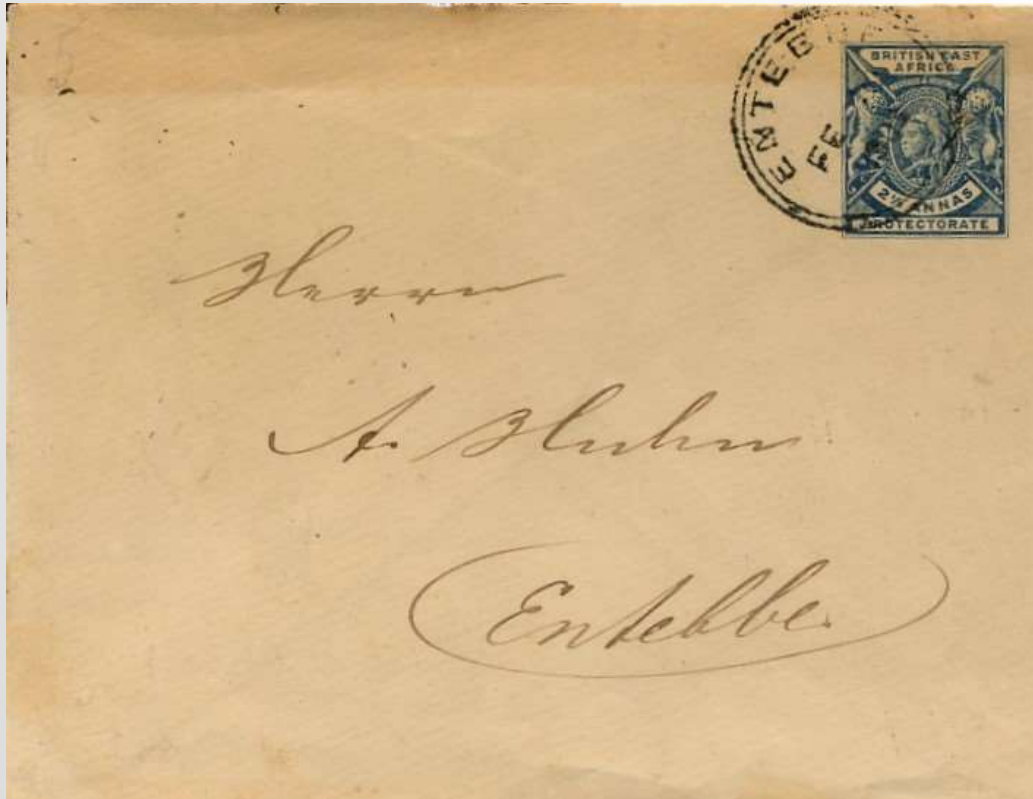 ENTEBB
FE
BRITISH EAST
AFRICA
2½ ANNAS
PROTECTORATE
Herrn
A.
Entebbe.